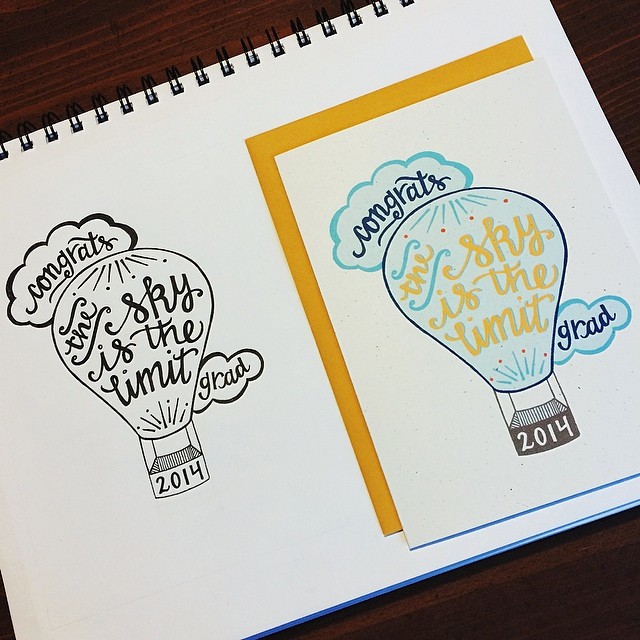 congrats
the sky
is the
limit
grad
2014
congrats
the sky
is the
limit
grad
2014